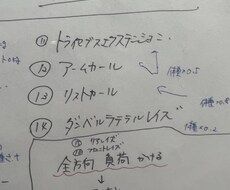 ⑪ トライセプスエクステンション
⑫ アームカール
1種×0.5
⑬ リストカール
1種×0.5
⑭ ダンベルラテラルレイズ
1種×0.2
⑮ リアレイズ
⑯ フロントレイズ
全方向 負荷 かける
↓